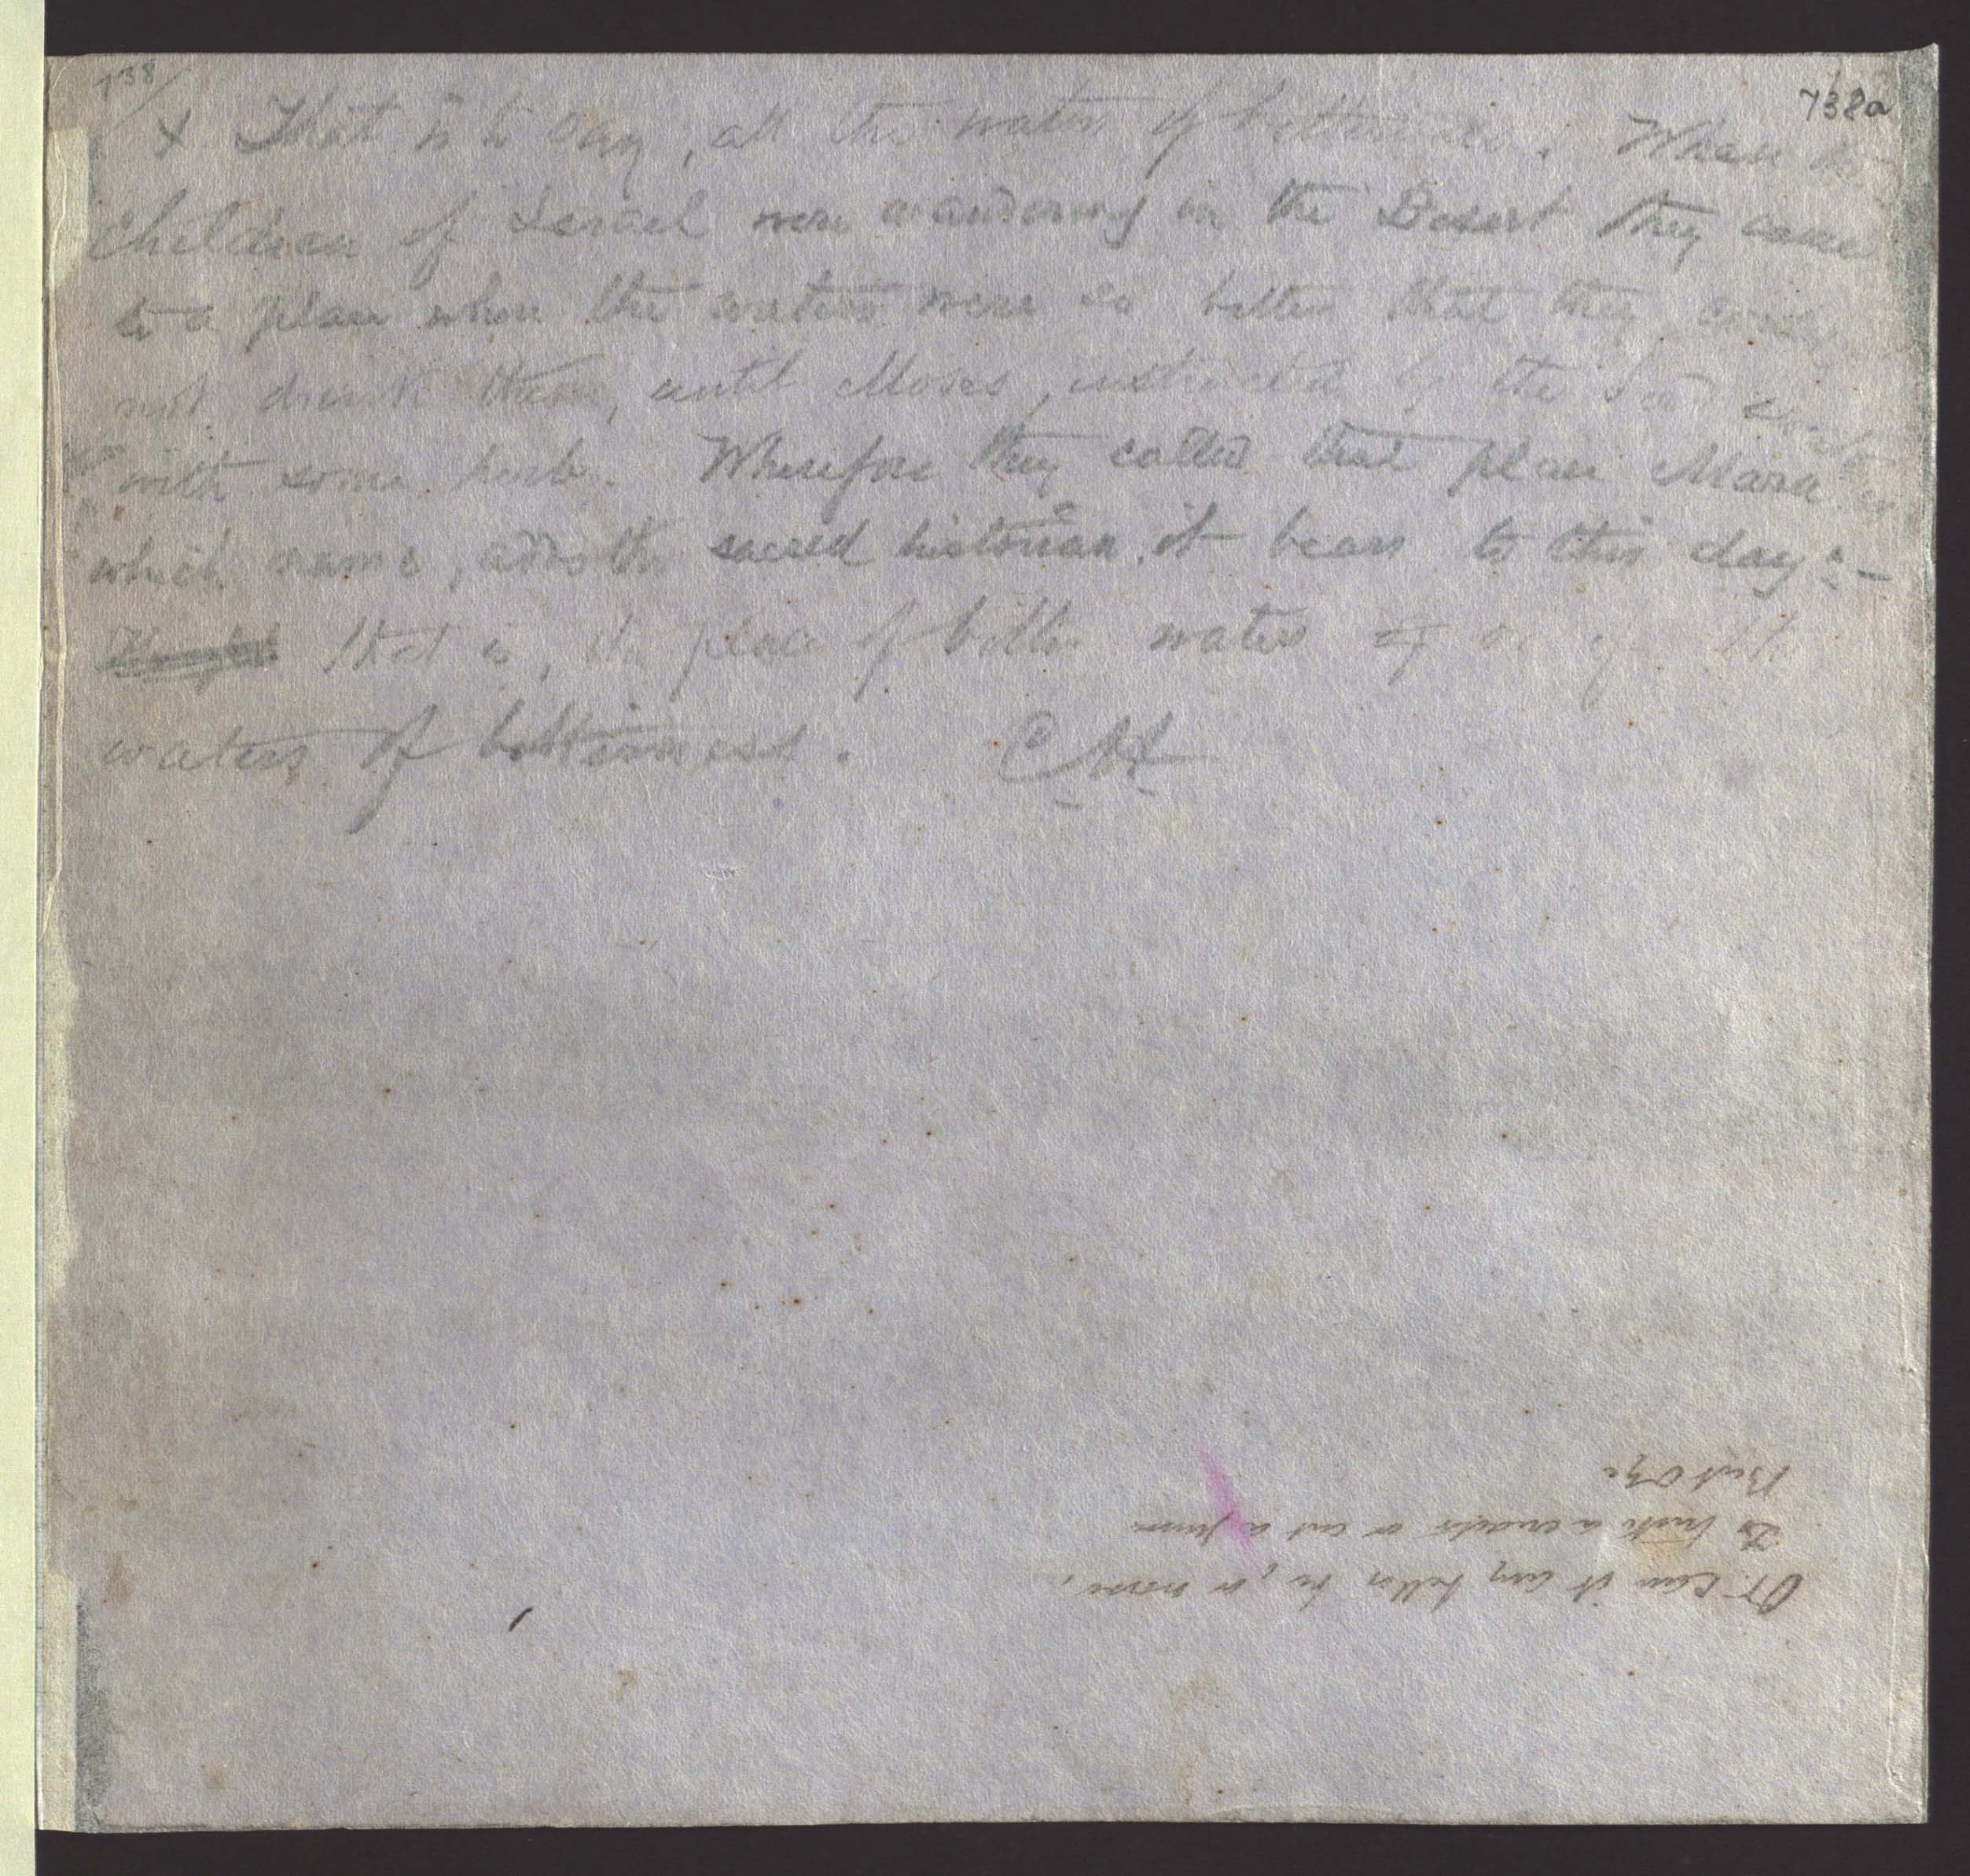 738/
738a
x That is to say, all the waters of bitterness. When the
children of Israel were wandering in the Desert they came
to a place where the waters were so bitter that they could
not drink them, until Moses, instructed by the Lord
with some herb. Wherefore they called that place Mara
which name, adds the sacred historian, it bears to this day:-
That is, the place of bitter water or of the
waters of bitterness. CH
Or can it any better be, or worse,
To write a or cut a
But Oh